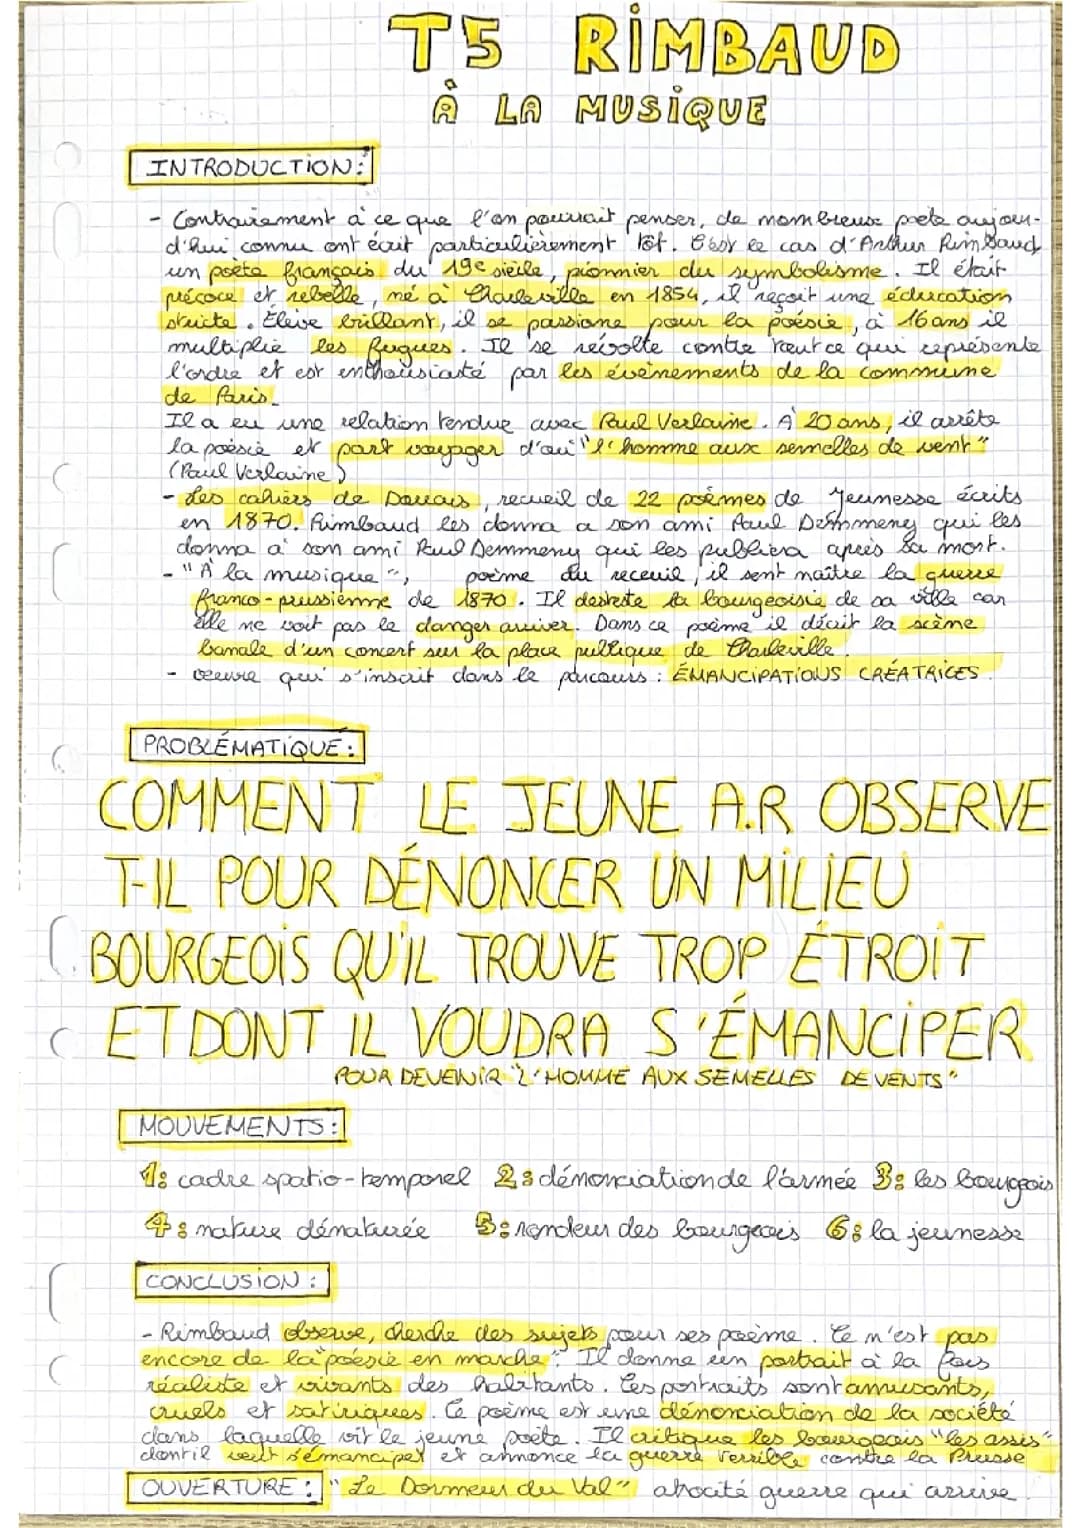 T5 RIMBAUD
À LA MUSIQUE
INTRODUCTION :
- Contrairement à ce que l'on pourrait penser, de nombreux poète aujour-
d'hui connu ont écrit particulièrement tôt. C'est le cas d'Arthur Rimbaud,
un poète français du 19e siècle, pionnier du symbolisme. Il était
précoce et rebelle, né à Charleville en 1854, il reçoit une éducation
stricte. Élève brillant, il se passione pour la poésie, à 16 ans il
multiplie les fugues. Il se révolte contre tout ce qui représente
l'ordre et est enthousiasté par les événements de la commune
de Paris.
Il a eu une relation tendue avec Paul Verlaine. À 20 ans, il arrête
la poésie et part voyager d'où "l'homme aux semelles de vent"
(Paul Verlaine)
- Les cahiers de Douais, recueil de 22 poèmes de jeunesse écrits
en 1870. Rimbaud les donna a son ami Paul Demmeny qui les
donna a' son ami Paul Demmeny qui les publiera après sa mort.
- "À la musique", poème du receuil, il sent naître la guerre
franco-prussienne de 1870. Il desteste la bourgeoisie de sa ville car
elle ne voit pas le danger arriver. Dans ce poème il décrit la scène
banale d'un concert sur la place publique de Charleville.
- oeuvre qui s'inscrit dans le parcours : ÉMANCIPATIONS CRÉATRICES.
PROBLÉMATIQUE :
COMMENT LE JEUNE A.R OBSERVE
T-IL POUR DÉNONCER UN MILIEU
BOURGEOIS QU'IL TROUVE TROP ÉTROIT
ET DONT IL VOUDRA S'ÉMANCIPER
POUR DEVENIR "L'HOMME AUX SEMELLES DE VENTS"
MOUVEMENTS :
1: cadre spatio-temporel 2: dénonciation de l'armée 3: les bourgeois
4: nature dénaturée 5: rondeur des bourgeois 6: la jeunesse
CONCLUSION :
- Rimbaud observe, cherche des sujets pour ses poème. Ce n'est pas
encore de la "poésie en marche". Il donne un portrait à la fois
réaliste et vivants des habitants. Ces portraits sont amusants,
cruels et satiriques. Ce poème est une dénonciation de la société
dans laquelle vit le jeune poète. Il critique les bourgeois "les assis"
dont il veut s'émanciper et annonce la guerre terrible contre la Prusse
OUVERTURE : "Le Dormeur du Val" atrocité guerre qui arrive.